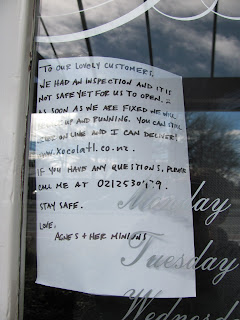 TO OUR LOVELY CUSTOMERS,
WE HAD AN INSPECTION AND IT IS
NOT SAFE YET FOR US TO OPEN.
AS SOON AS WE ARE FIXED WE WILL
UP AND RUNNING. YOU CAN STILL
ON LINE AND I CAN DELIVER!
www.xocolatl.co.nz.
IF YOU HAVE ANY QUESTIONS, PLEASE
CALL ME AT
STAY SAFE.
LOVE,
AGNES + HER MINIONS
Monday
Tuesday
Wednesday